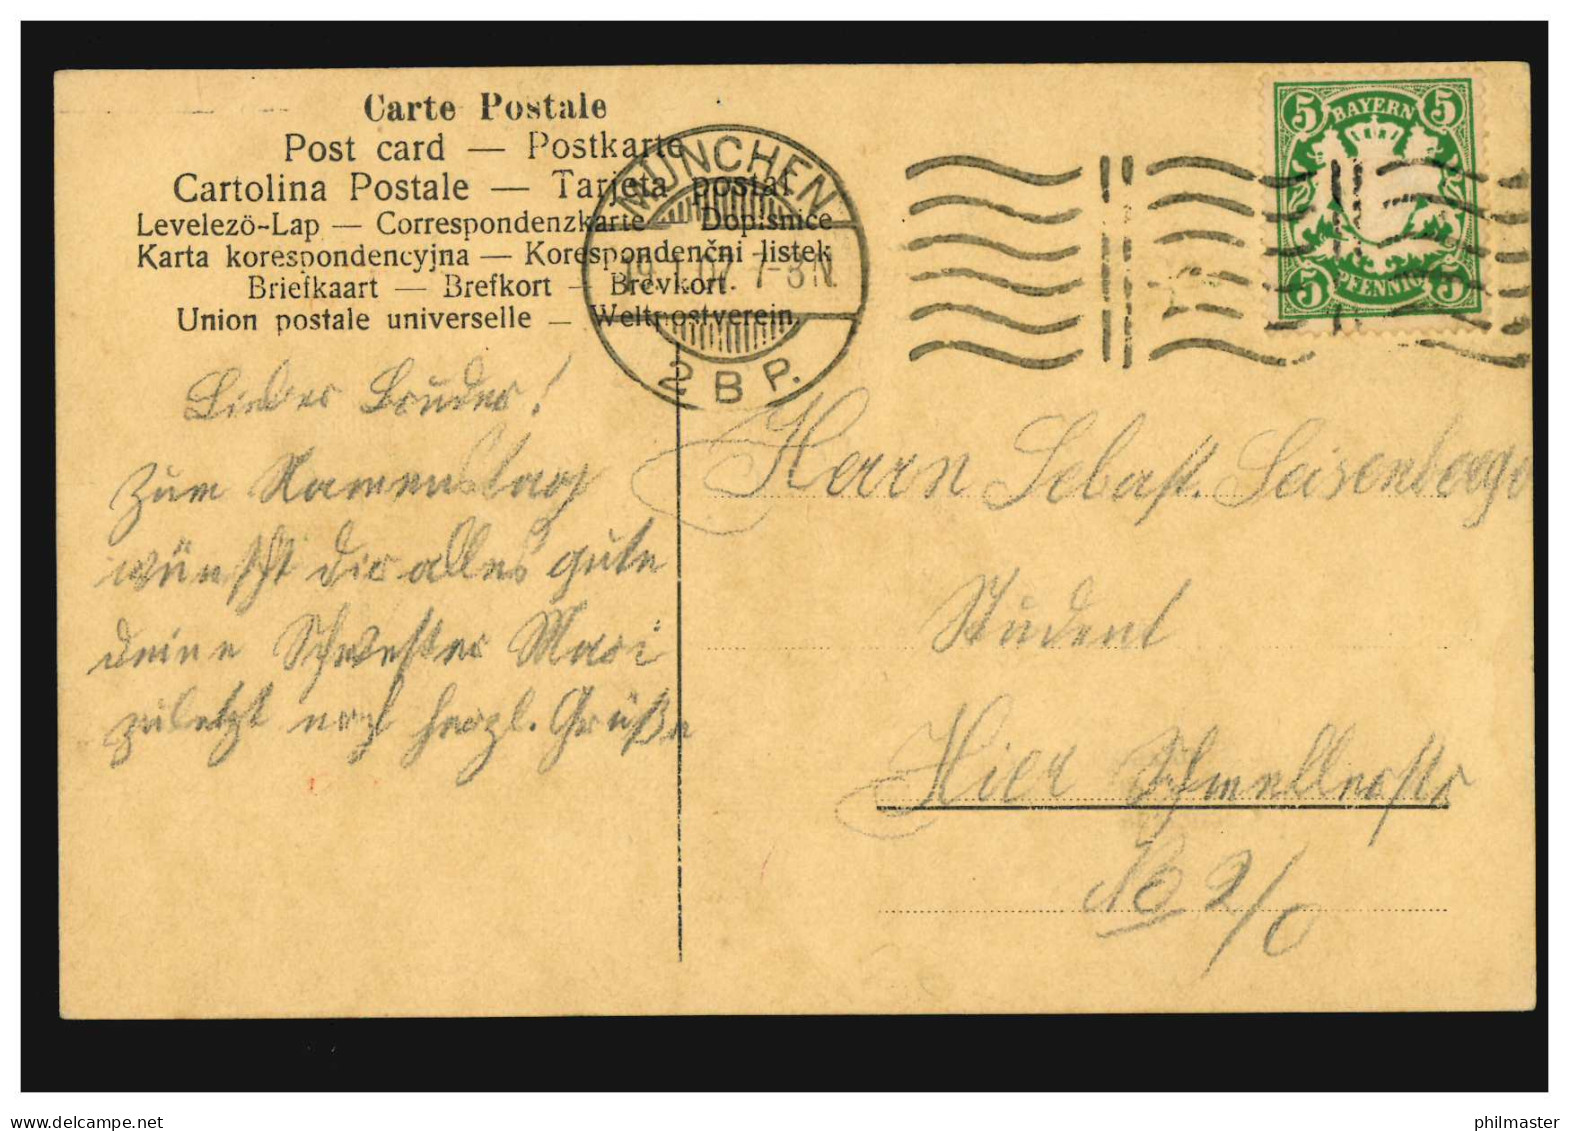 Carte Postale
Post card — Postkarte
Cartolina Postale — Tarjeta postal
Levelezö-Lap — Correspondenzkarte — Dopisnice
Karta korespondencyjna — Korespondenčni listek
Briefkaart — Brefkort — Brevkort.
Union postale universelle — Weltpostverein.
MÜNCHEN
19.1.07 7-8 N.
2 B P.
5 BAYERN 5
5 PFENNIG 5
Lieber Bruder!
Zum Namenstag
wünscht dir alles gute
deine Schwester Mari
zuletzt noch herzl. Grüße
Herrn Sebast. Seisenberger
Student
Hier Schmellerstr
No 2/0
www.oldthing.net
philmaster